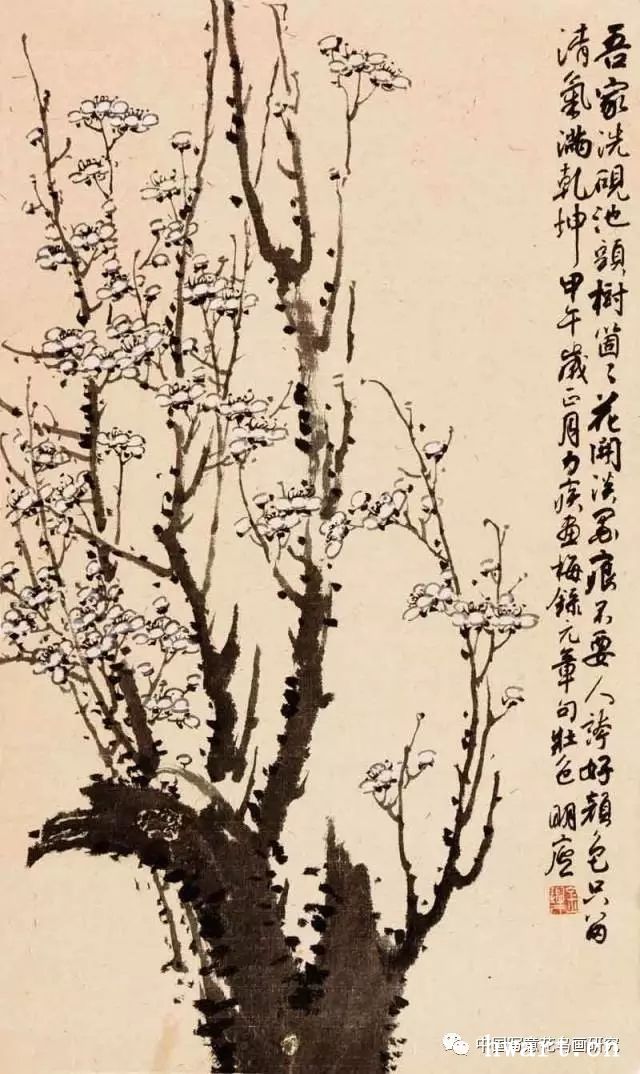 吾家洗硯池頭樹箇〻花開淡墨痕不要人誇好顏色只留
清氣滿乾坤 甲午歲正月力疾画梅錄元章句壯色 明
中国写意花鸟画研究
hwart.cn